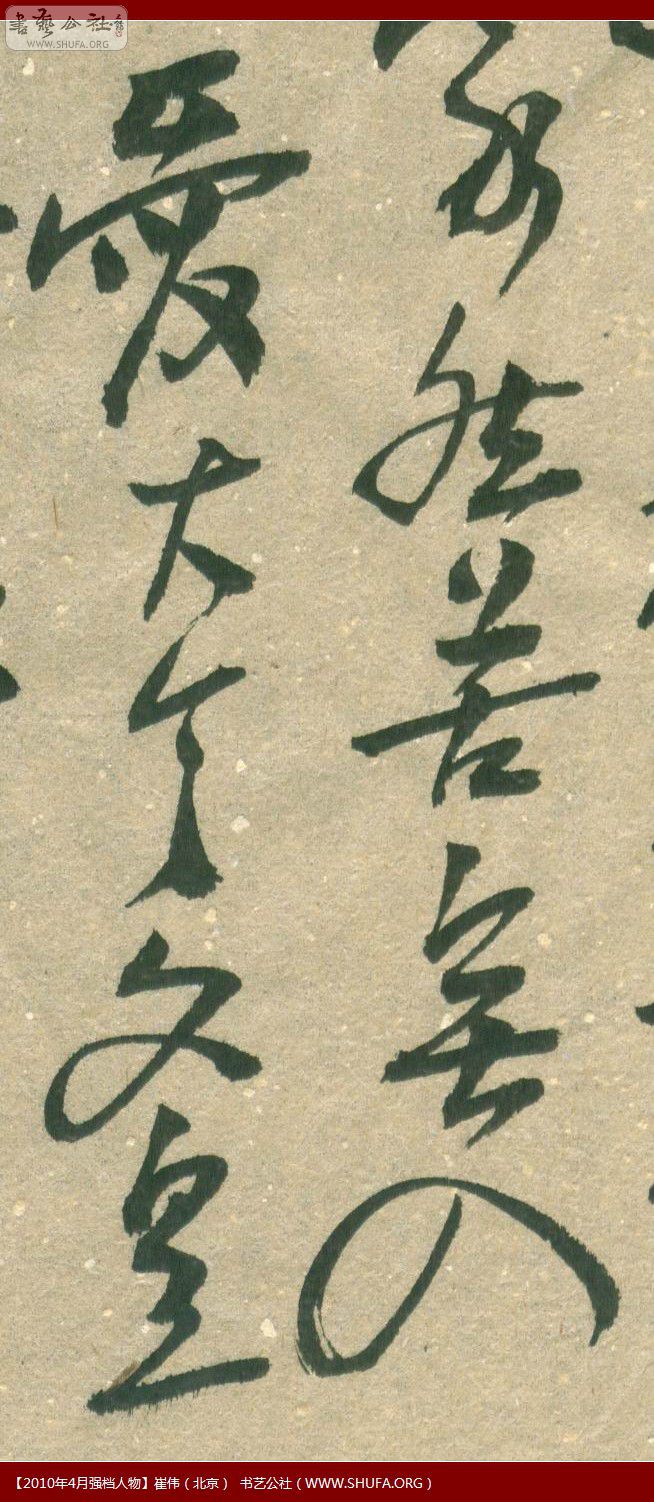 書藝公社
WWW.SHUFA.ORG
然 無
愛大令文皇
【2010年4月强档人物】崔伟（北京） 书艺公社（WWW.SHUFA.ORG）